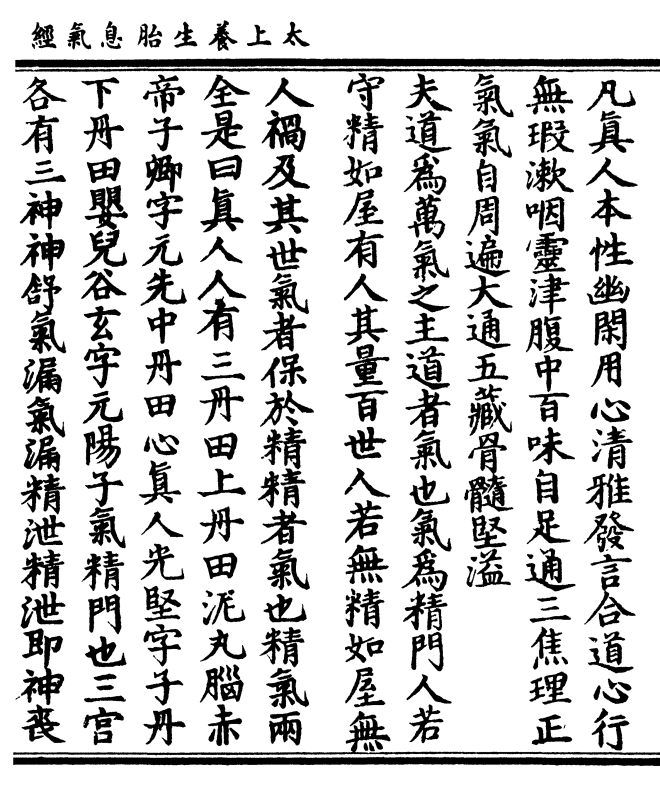 太上養生胎息氣經
凡真人本性幽閑用心清雅發言合道心行
無瑕漱咽靈津腹中百味自足通三焦理正
氣氣自周遍大通五藏骨髓堅溢
夫道為萬氣之主道者氣也氣為精門人若
守精如屋有人其量百世人若無精如屋無
人禍及其世氣者保於精精者氣也精氣兩
全是曰真人人有三丹田上丹田泥丸腦赤
帝子卿字元先中丹田心真人光堅字子丹
下丹田嬰兒谷玄字元陽子氣精門也三宮
各有三神神舒氣漏氣漏精泄精泄即神喪